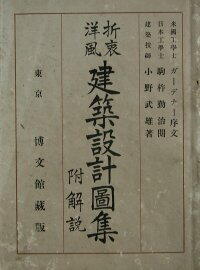 米國工學士 ガーデナー序文
日本工學士 駒杵勤治閲
建築技師 小野武雄著
折衷
洋風
建築設計圖集
附解説
東京 博文館藏版